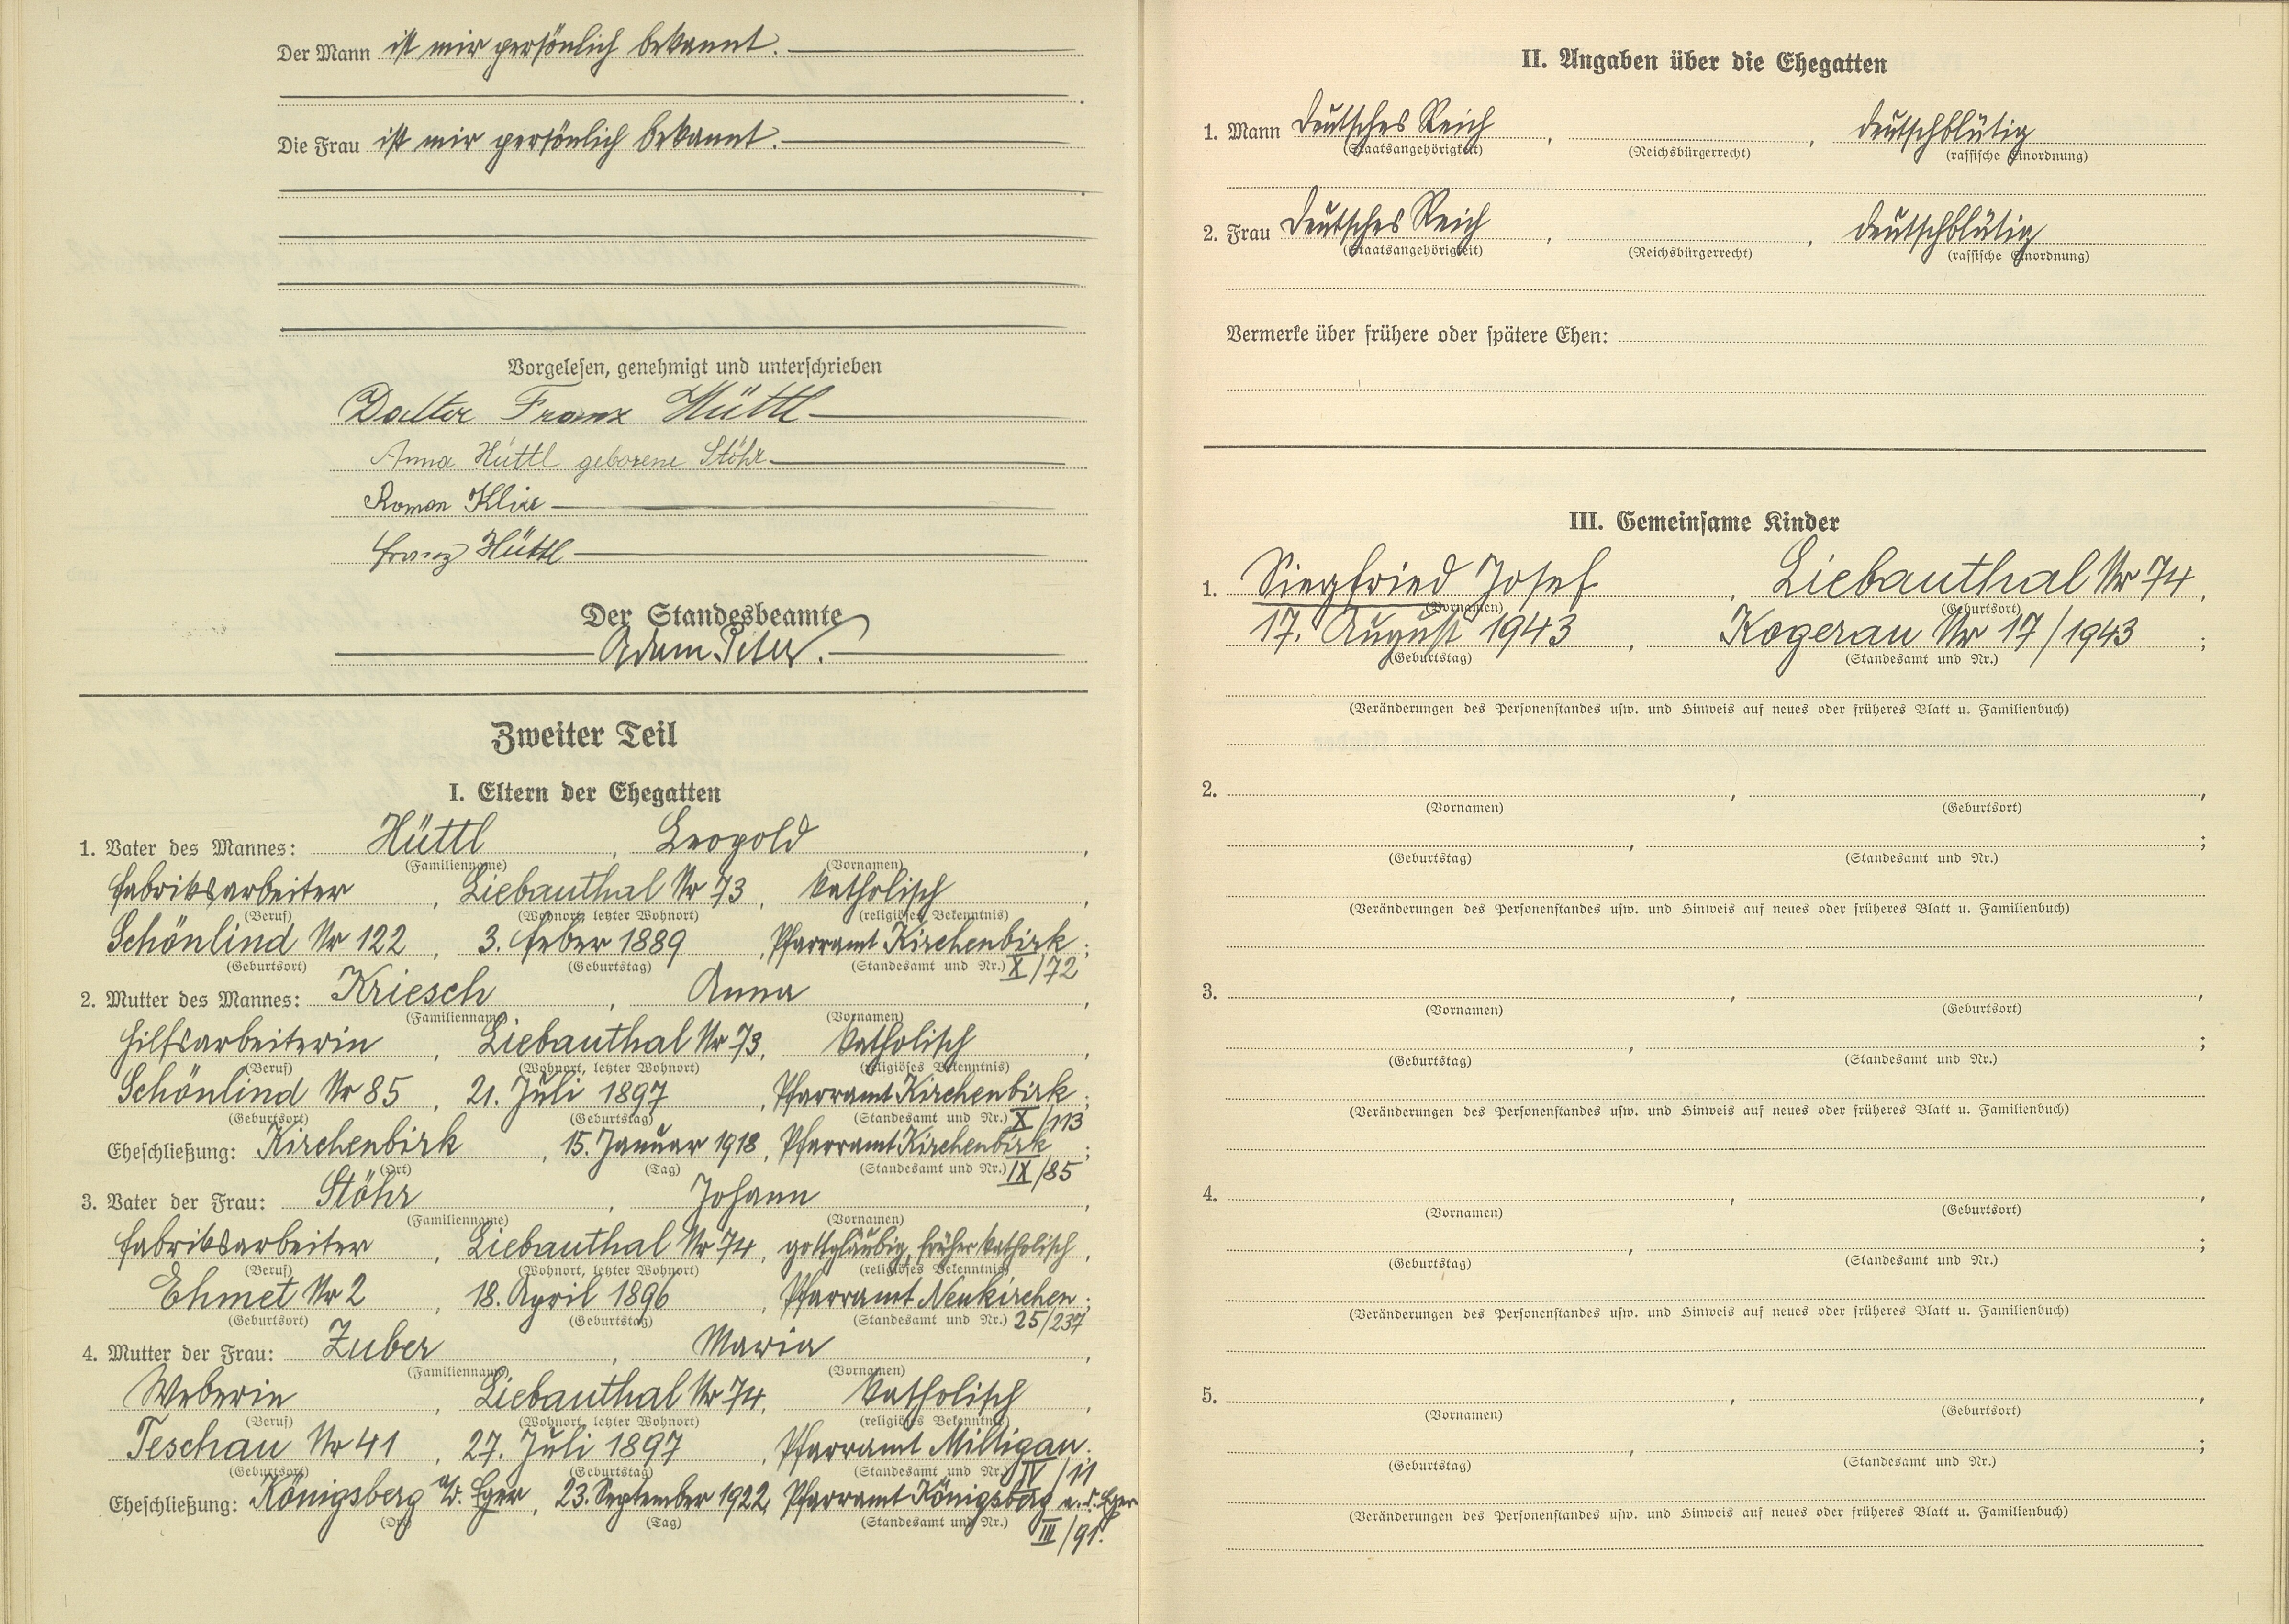 Der Mann ist mir persönlich bekannt.
Die Frau ist mir persönlich bekannt.
Vorgelesen, genehmigt und unterschrieben
Franz Hüttl
Anna Hüttl geborene Stöhr
Roman Klier
Franz Hüttl
Der Standesbeamte
Adam Peter.
Zweiter Teil
I. Eltern der Ehegatten
1. Vater des Mannes: Hüttl, Leopold,
(Familienname) (Vornamen)
Fabriksarbeiter, Liebauthal Nr 73, katholisch,
(Beruf) (Wohnort, letzter Wohnort) (religiöses Bekenntnis)
Schönlind Nr 122, 3. Feber 1889, Pfarramt Kirchenbirk;
(Geburtsort) (Geburtstag) (Standesamt und Nr.) X/72
2. Mutter des Mannes: Kriesch, Anna,
(Familienname) (Vornamen)
Hilfsarbeiterin, Liebauthal Nr 73, katholisch,
(Beruf) (Wohnort, letzter Wohnort) (religiöses Bekenntnis)
Schönlind Nr 85, 21. Juli 1897, Pfarramt Kirchenbirk;
(Geburtsort) (Geburtstag) (Standesamt und Nr.) X/113
Eheschließung: Kirchenbirk, 15. Januar 1918, Pfarramt Kirchenbirk;
(Ort) (Tag) (Standesamt und Nr.) IX/85
3. Vater der Frau: Stöhr, Johann,
(Familienname) (Vornamen)
Fabriksarbeiter, Liebauthal Nr 74, gottgläubig, früher katholisch,
(Beruf) (Wohnort, letzter Wohnort) (religiöses Bekenntnis)
Ehmet Nr 2, 18. April 1896, Pfarramt Neukirchen;
(Geburtsort) (Geburtstag) (Standesamt und Nr.) 25/237
4. Mutter der Frau: Zuber, Maria,
(Familienname) (Vornamen)
Weberin, Liebauthal Nr 74, katholisch,
(Beruf) (Wohnort, letzter Wohnort) (religiöses Bekenntnis)
Teschau Nr 41, 27. Juli 1897, Pfarramt Miltigau;
(Geburtsort) (Geburtstag) (Standesamt und Nr.) IV/11
Eheschließung: Königsberg a/d. Eger, 23. September 1922, Pfarramt Königsberg a. d. Eger
(Ort) (Tag) (Standesamt und Nr.) III/91.
II. Angaben über die Ehegatten
1. Mann Deutsches Reich, , deutschblütig
(Staatsangehörigkeit) (Reichsbürgerrecht) (rassische Einordnung)
2. Frau Deutsches Reich, , deutschblütig
(Staatsangehörigkeit) (Reichsbürgerrecht) (rassische Einordnung)
Vermerke über frühere oder spätere Ehen:
III. Gemeinsame Kinder
1. Siegfried Josef, Liebauthal Nr 74,
(Vornamen) (Geburtsort)
17. August 1943, Kogerau Nr 17/1943;
(Geburtstag) (Standesamt und Nr.)
(Veränderungen des Personenstandes usw. und Hinweis auf neues oder früheres Blatt u. Familienbuch)
2. , ,
(Vornamen) (Geburtsort)
, ;
(Geburtstag) (Standesamt und Nr.)
(Veränderungen des Personenstandes usw. und Hinweis auf neues oder früheres Blatt u. Familienbuch)
3. , ,
(Vornamen) (Geburtsort)
, ;
(Geburtstag) (Standesamt und Nr.)
(Veränderungen des Personenstandes usw. und Hinweis auf neues oder früheres Blatt u. Familienbuch)
4. , ,
(Vornamen) (Geburtsort)
, ;
(Geburtstag) (Standesamt und Nr.)
(Veränderungen des Personenstandes usw. und Hinweis auf neues oder früheres Blatt u. Familienbuch)
5. , ,
(Vornamen) (Geburtsort)
, ;
(Geburtstag) (Standesamt und Nr.)
(Veränderungen des Personenstandes usw. und Hinweis auf neues oder früheres Blatt u. Familienbuch)